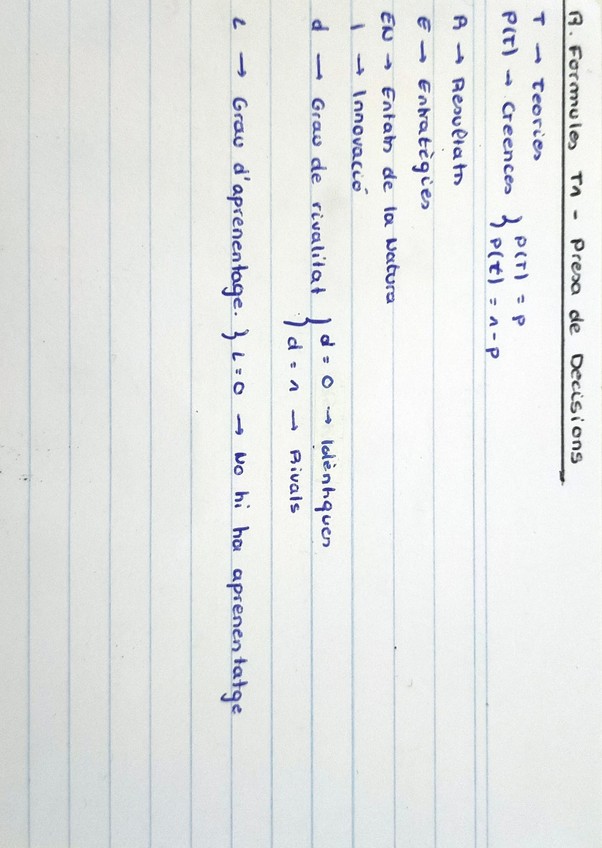 A. Formules T1 - Presa de Decisions
T → Teories
P(T) → Creences } P(T) = p
P(t) = 1 - p
R → Resultats
E → Estratègies
EN → Estats de la Natura
I → Innovació
d → Grau de rivalitat } d = 0 → Idèntiques
d = 1 → Rivals
L → Grau d'aprenentage. } L = 0 → No hi ha aprenentatge